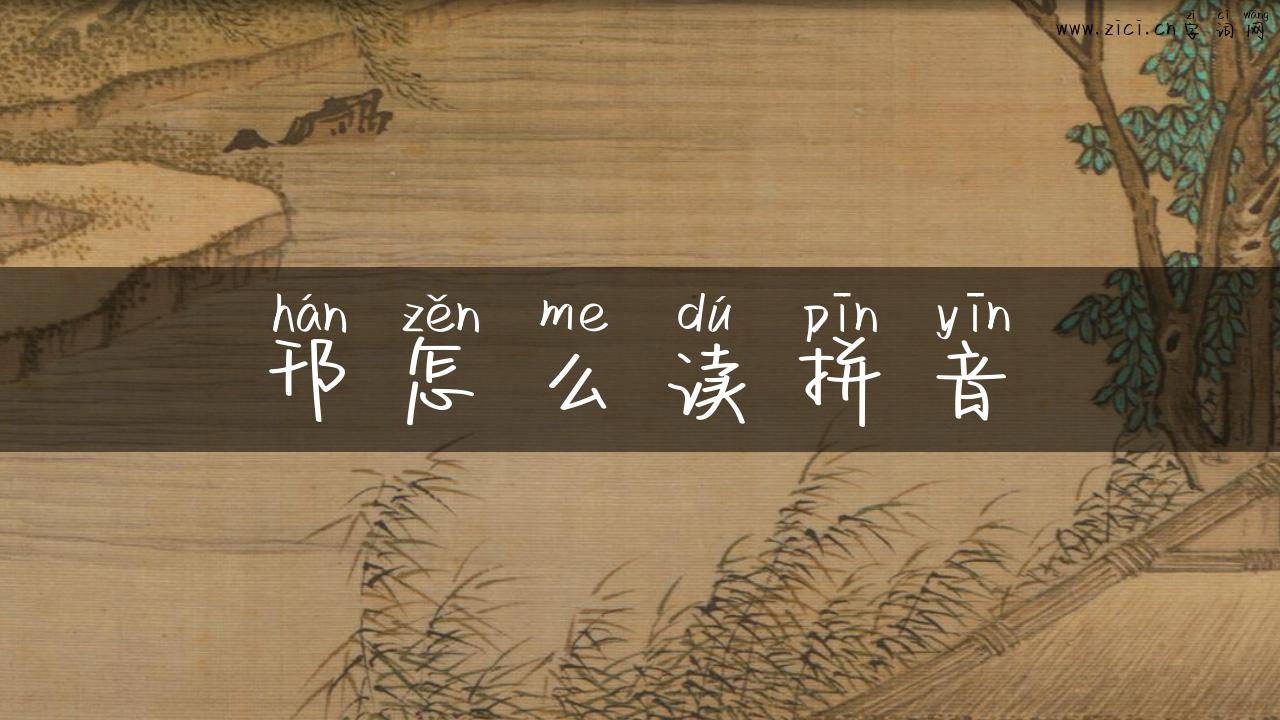 zì cí wǎng
www.zici.cn 字词网
hán zěn me dú pīn yīn
邗怎么读拼音